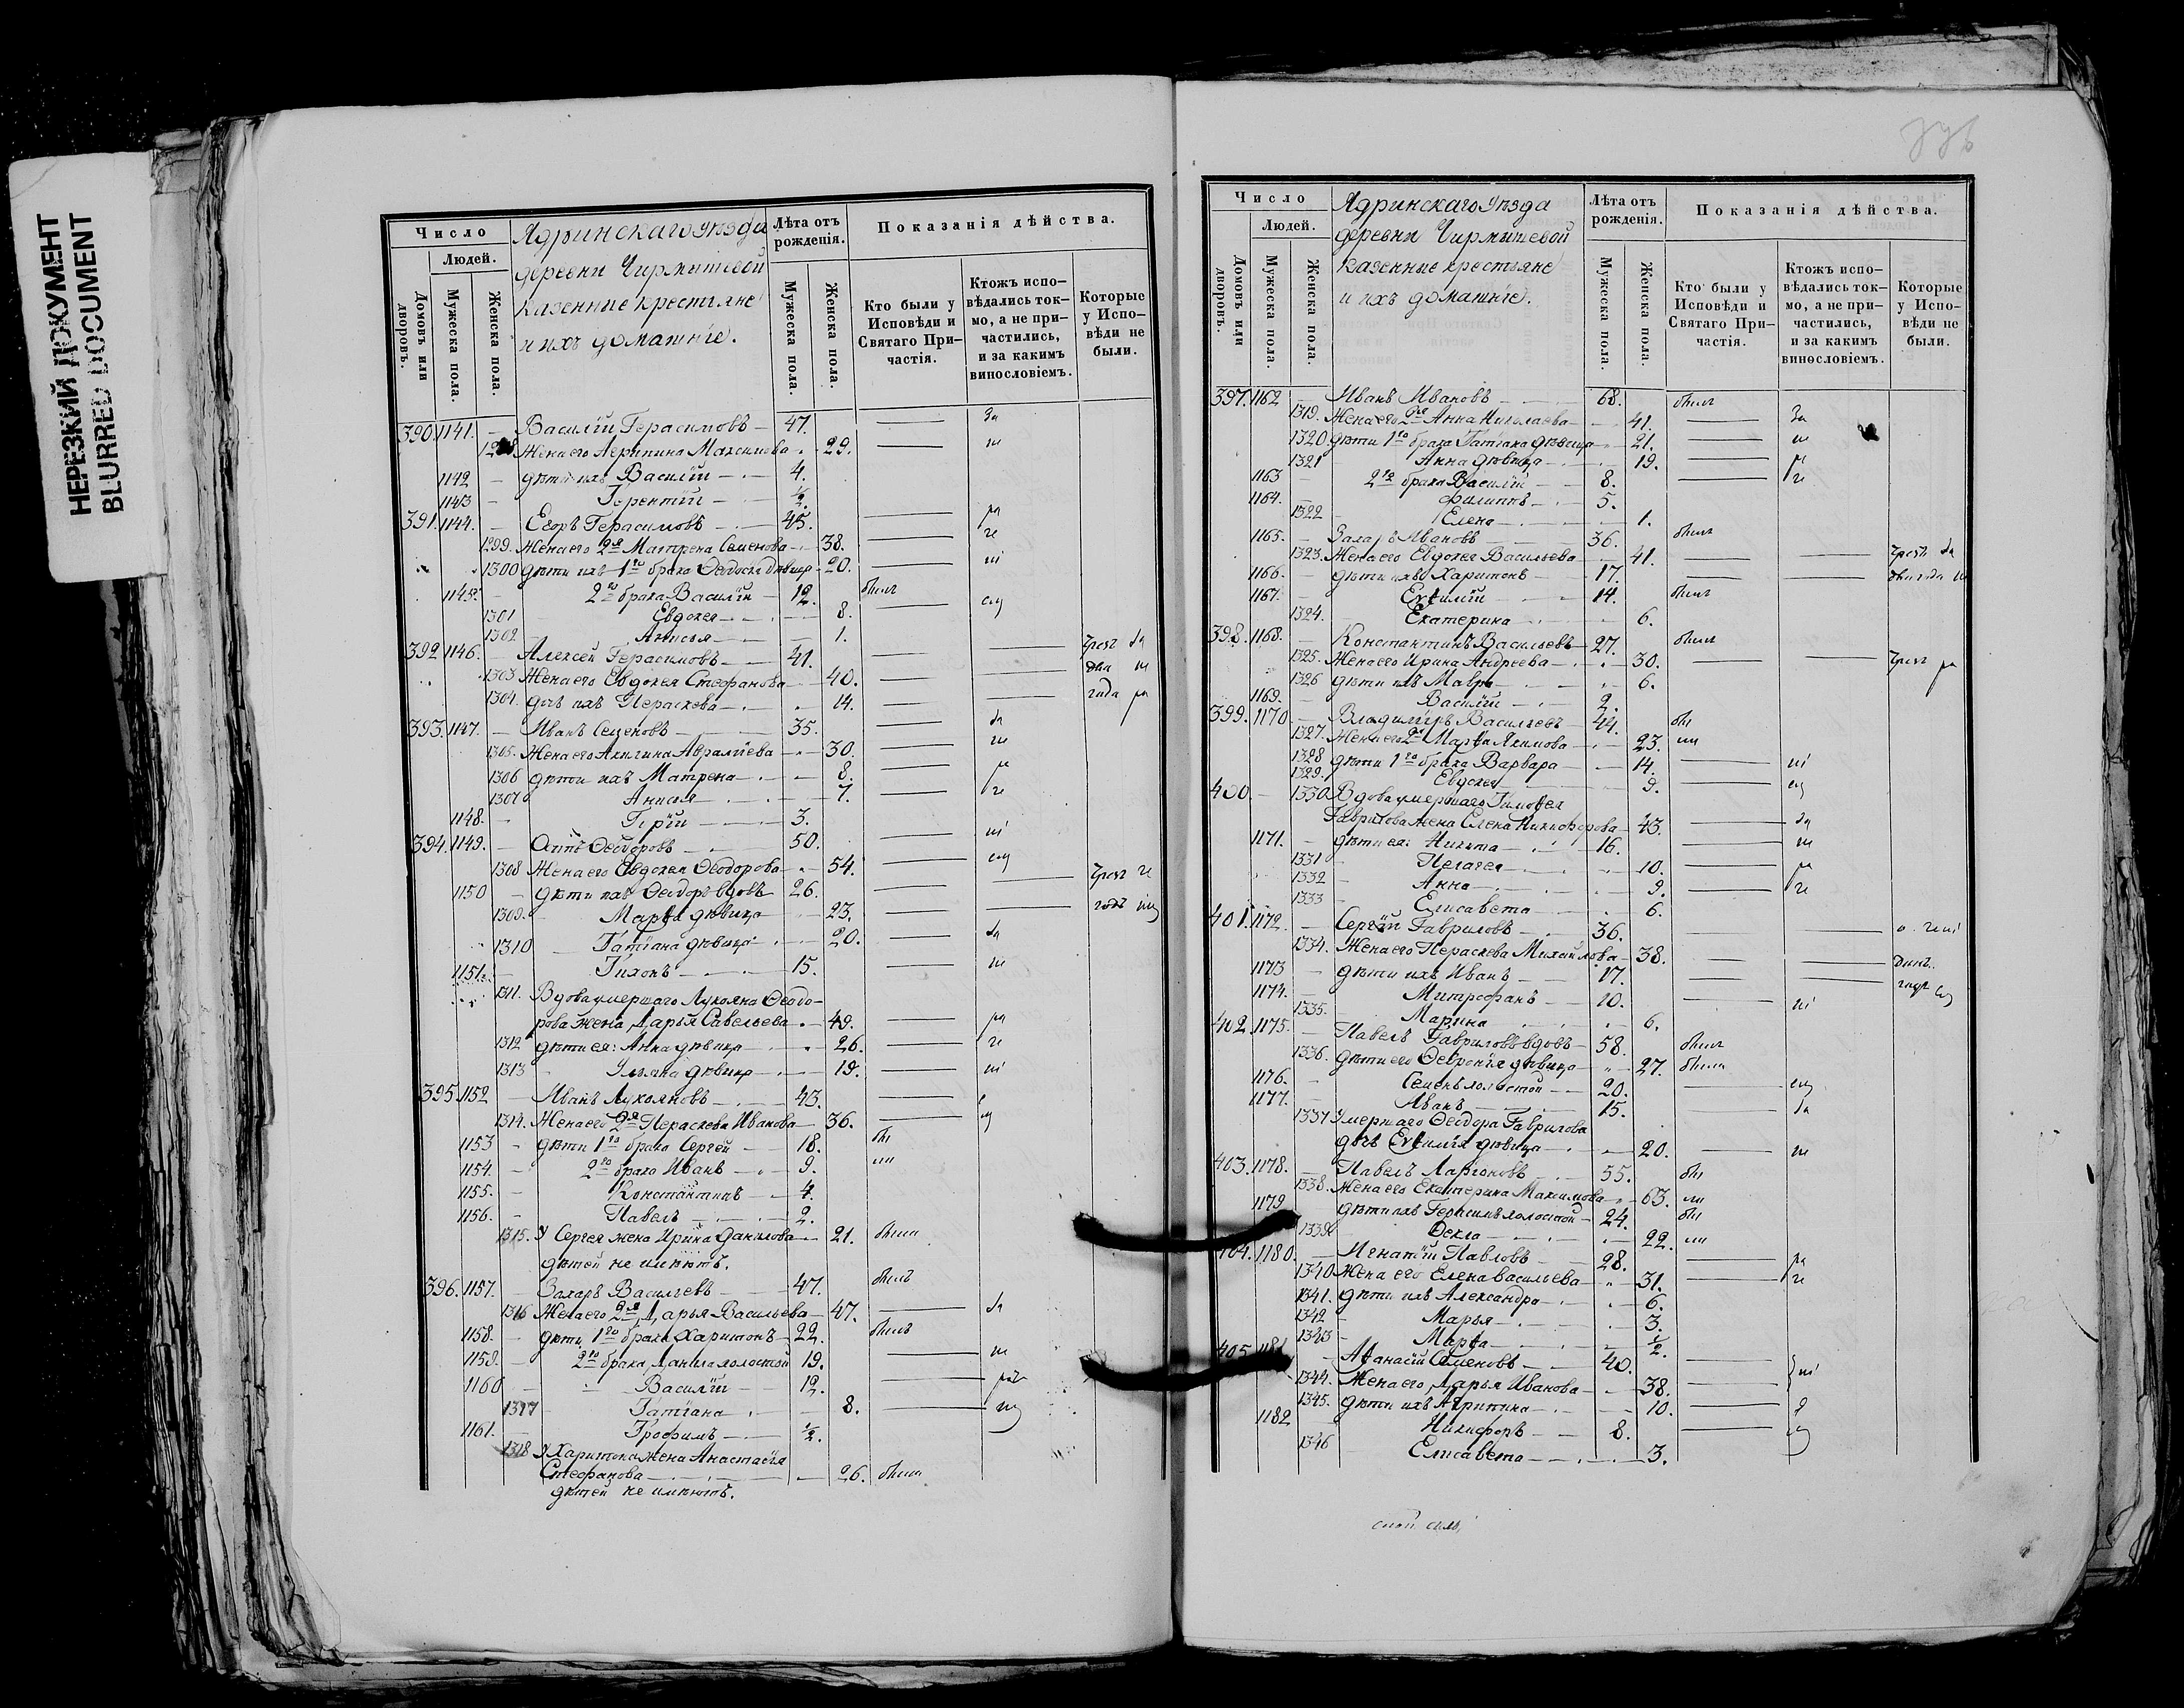 НЕРЕЗКИЙ ДОКУМЕНТ
BLURRED DOCUMENT
Число
Людей.
Домовъ или дворовъ.
Мужеска пола.
Женска пола.
Ядринскаго уѣзда
деревни Чирмышевой
казенные крестьяне
и ихъ домашніе.
Лѣта отъ рожденія.
Мужеска пола.
Женска пола.
Показанія дѣйства.
Кто были у Исповѣди и Святаго При-частія.
Ктожъ испо-вѣдались ток-мо, а не при-частились, и за какимъ винословіемъ.
Которые у Испо-вѣди не были.
390. 1141. — Василій Герасимовъ — 47. — За
Жена его Агрипина Максимова — 29. — не
1142 — дѣти ихъ Василій — 4.
1143 — Терентій — 1/2.
391. 1144. — Егоръ Герасимовъ — 45. — ра
1299. Жена его 2я Матрена Семенова — 38. — че
1300 дѣти ихъ 1го брака Ѳеодосия дѣвица — 20. — ні
1145. — 2го брака Василій — 12. былъ
1301 Евдокея — 8. — ем
1302 Анисья — 1.
392 1146. — Алексей Герасимовъ — 41. — — чрезъ
1303 Жена его Евдокея Стефанова — 40. — — два
1304. дочь ихъ Параскева — 14. — — года
393. 1147. — Иванъ Семеновъ — 35.
1305. Жена его Акилина Авраміева — 30.
1306 дѣти ихъ Матрена — 8. — ра
1307 Анисья — 7. — че
1148. — Гурій — 3.
394. 1149. — Осипъ Ѳеодоровъ — 50. — ні
1308 Жена его Евдокея Ѳеодорова — 54. — ем
1150 — дѣти ихъ Ѳеодоръ вдовъ 26. — — чрезъ
1309. Марѳа дѣвица 23.
1310 — Татіана дѣвица — 20.
1151. — Тихонъ — 15.
1311. Вдова умершаго Лукояна Ѳеодо-
рова жена Дарья Савельева — 49. — ра
1312 дѣти ея: Анна дѣвица — 26. — че
1313 — Ульяна дѣвица — 19. — ні
395. 1152 — Иванъ Лукояновъ — 43.
1314. Жена его 2я Параскева Иванова — 36.
1153 — дѣти 1го брака Сергей — 18. бы
1154. — 2го брака Иванъ — 9. ли
1155. — Константинъ — 4.
1156. — Павелъ — 2.
1315. У Сергея жена Ирина Данилова — 21. была
дѣтей не имѣютъ.
396. 1157. — Захаръ Васильевъ — 47. былъ
1316 Жена его 2я Дарья Васильева — 47.
1158. — дѣти 1го брака Харитонъ — 22. былъ
1159. — 2го брака Данила холостой 19.
1160 — Василій — 12.
1317 — Татіана — 8.
1161. — Трофимъ — 1/2.
1318 У Харитона жена Анастасія
Стефанова — 26. была
дѣтей не имѣютъ.
Число
Людей.
Домовъ или дворовъ.
Мужеска пола.
Женска пола.
Ядринскаго уѣзда
деревни Чирмышевой
казенные крестьяне
и ихъ домашніе.
Лѣта отъ рожденія.
Мужеска пола.
Женска пола.
Показанія дѣйства.
Кто были у Исповѣди и Святаго При-частія.
Ктожъ испо-вѣдались ток-мо, а не при-частились, и за какимъ винословіемъ.
Которые у Испо-вѣди не были.
397. 1162 — Иванъ Ивановъ — 68. былъ
1319. Жена его 2я Анна Николаева — 41. — За
1320. дѣти 1го брака Татіана дѣвица — 21. — не
1321 Анна дѣвица — 19. — ра
1163 — 2го брака Василій — 8. — че
1164. — Филиппъ — 5.
1322 Елена — 1.
1165. — Захаръ Ивановъ — 36. былъ
1323. Жена его Евдокея Васильева — 41. — — чрезъ
1166. — дѣти ихъ Харитонъ — 17. — — два года
1167. — Евѳимій — 14. былъ
1324. Екатерина — 6.
398. 1168. — Константинъ Васильевъ — 27. былъ
1325. Жена его Ирина Андреева — 30. — — чрезъ
1326 дѣти ихъ Мавра — 6.
1169. — Василій — 2.
399. 1170. — Владиміръ Васильевъ — 44. бы
1327. Жена его 2я Марѳа Якимова — 23. ли
1328 дѣти 1го брака Варвара — 14. — ні
1329. Евдокея — 9. — ем
400. — 1330. Вдова умершаго Тимоѳея
Гаврилова жена Елена Никифорова — 43.
1171. — дѣти ея: Никита — 16.
1331 — Пелагея — 10. — ра
1332 Анна — 9. — че
1333 Елисавета — 6.
401. 1172. — Сергѣй Гавриловъ — 36.
1334. Жена его Параскева Михайлова — 38.
1173 — дѣти ихъ Иванъ — 17.
1174. — Митрофанъ — 10. — ні
1335. Марина — 6.
402. 1175. — Павелъ Гавриловъ вдовъ — 58. былъ
1336. дѣти его Ѳевронія дѣвица — 27. была
1176. — Семенъ холостой — 20.
1177. — Иванъ — 15.
1337 Умершаго Ѳеодора Гаврилова
дочь Евѳимія дѣвица — 20.
403. 1178. — Павелъ Ларіоновъ — 55. бы
1338. Жена его Екатерина Максимова — 63. ли
1179 — дѣти ихъ Герасимъ холостой — 24. бы
1339. Ѳекла — 22. ли
404. 1180. — Игнатій Павловъ — 28. — ра
1340 Жена его Елена Васильева — 31. — че
1341. дѣти ихъ Александра — 6.
1342 — Марья — 3.
1343 — Марѳа — 1/2.
405. 1181 — Аѳанасій Семеновъ — 40.
1344. Жена его Дарья Иванова — 38. — ні
1345. дѣти ихъ Агрипина — 10.
1182 — Никифоръ — 8.
1346 Елисавета — 3.